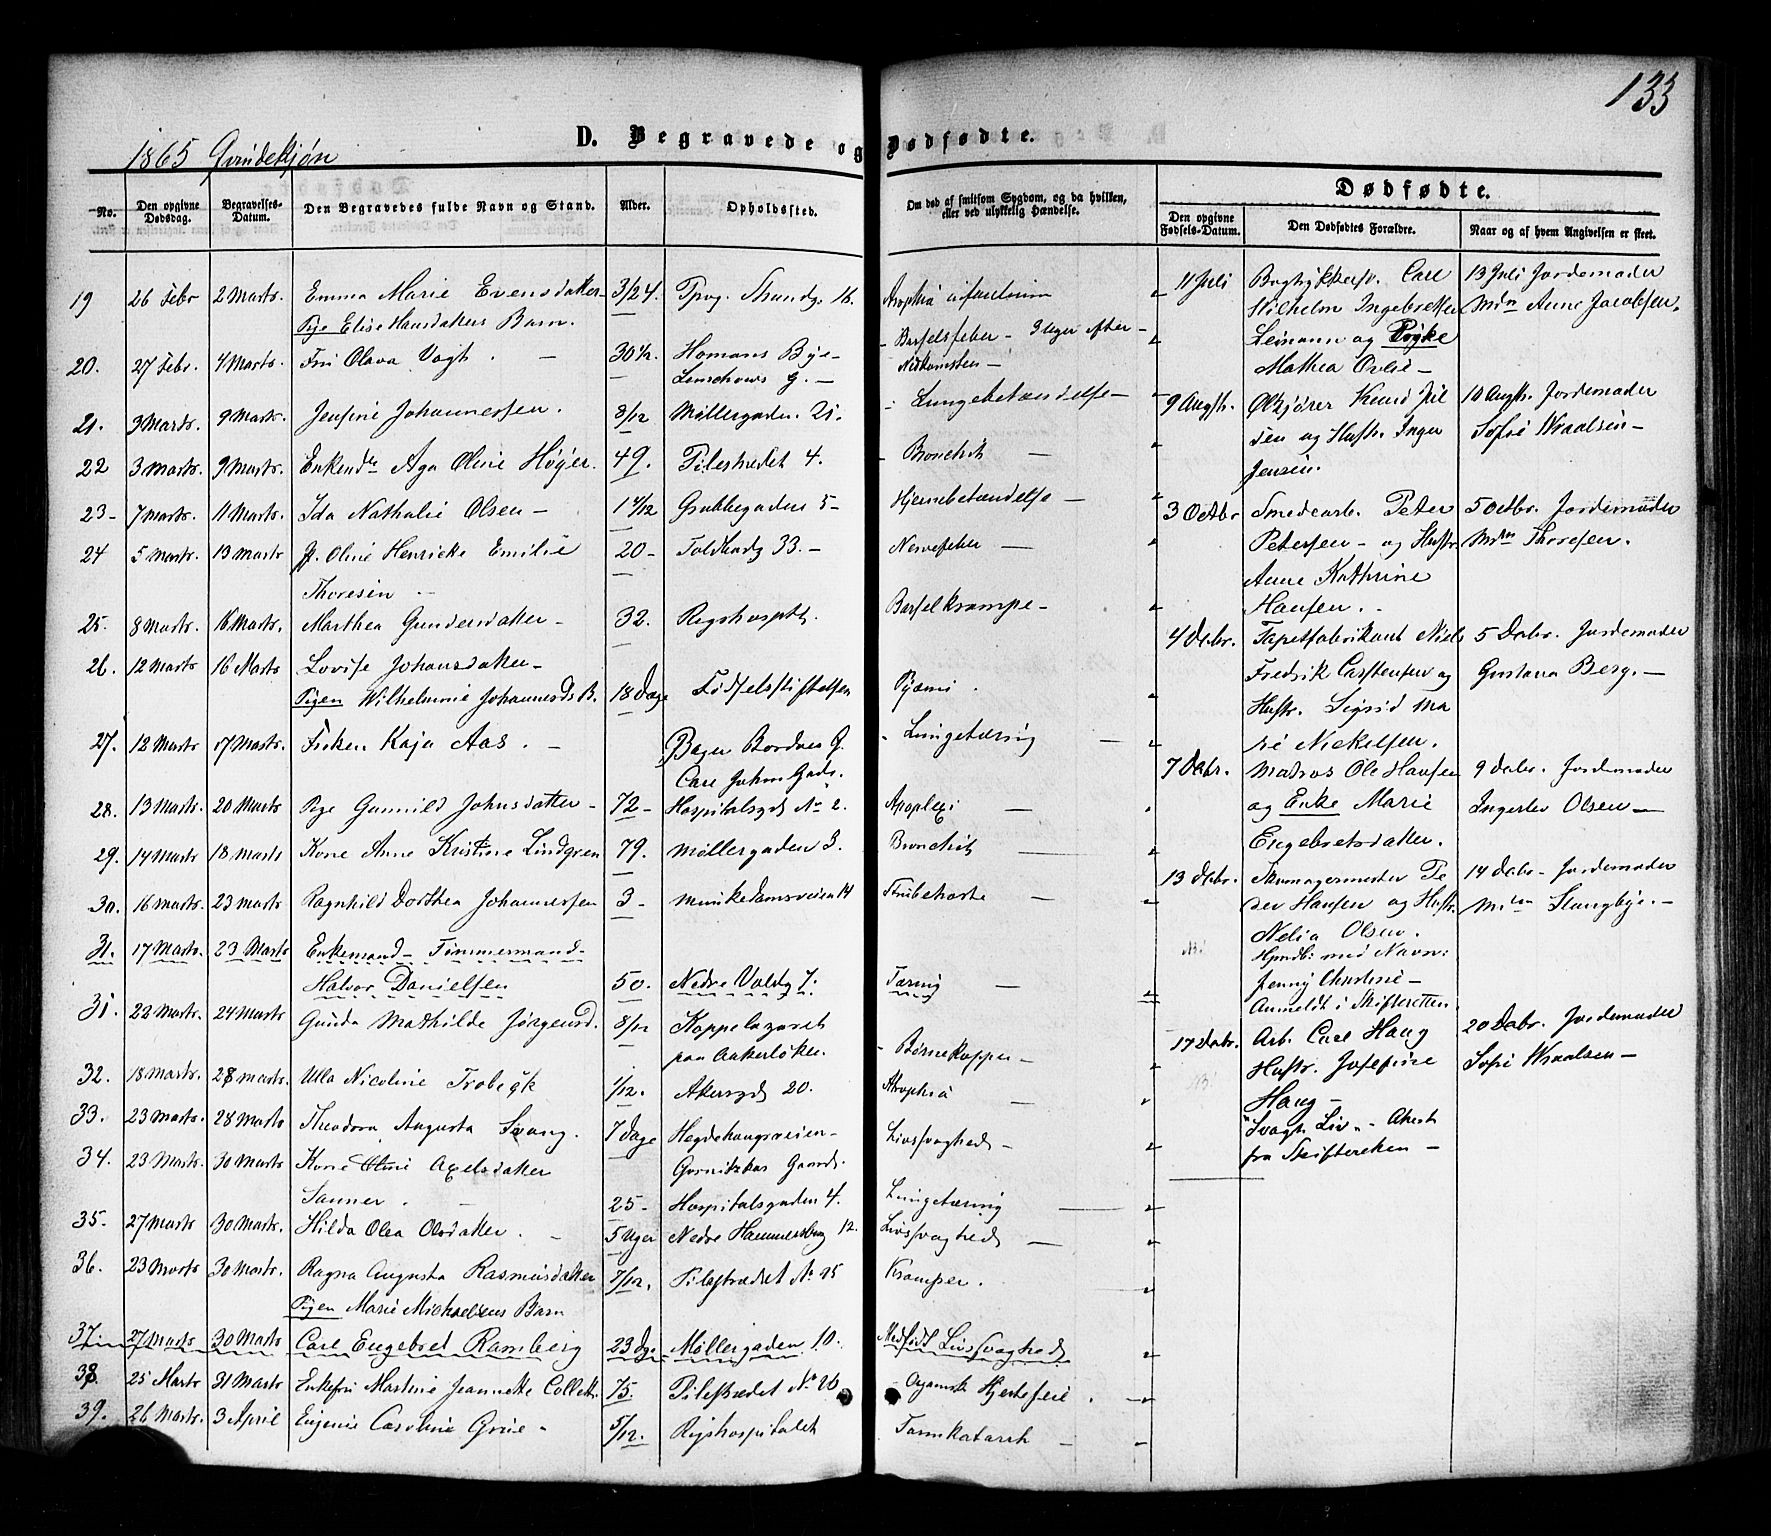 133
1865 Qvindekjøn
D. Begravede og Dødfødte.
No.
Den opgivne Dødsdag.
Begravelses-Datum.
Den Begravedes fulde Navn og Stand.
Alder.
Opholdssted.
Om død af smitsom Sygdom, og da hvilken, eller ved ulykkelig Hændelse.
Dødfødte.
Den opgivne Fødsels-Datum.
Den Dødfødtes Forældre.
Naar og af hvem Angivelsen er skeet.
19 26 Febr 2 Marts. Emma Marie Evensdatter 3/24. Strandg. 16.
Pige Elise Hansdatters Barn.
20. 27 Febr. 4 Marts. Fru Olava Vogt. 30 1/2. Homans Bye Barselfeber - 3 Uger efter
Lenschows G. Nedkomsten
21. 3 Marts. 9 Marts. Jensine Johannessen. 8/12 Møllergaden. 21. Lungebetændelse
22 3 Marts. 9 Marts. Enkende Aga Oline Høyer. 49. Pilestrædet 4. Bronchit
23 7 Marts. 11 Marts. Ida Nathalie Olsen 14/12 Grubbegaden 5 Hjernebetændelse
24 5 Marts. 13 Marts Oline Henricke Emilie 20 Toldbodg 33. Nervefeber
Thoresen
25. 8 Marts. 16 Marts. Marthea Gundersdatter 32. Rigshospit. Barselkrampe
26. 12 Marts 16 Marts Lovise Johansdatter
Pigen Wilhelmine Johannesds B. 18 Dage Fødselsstiftelsen Pyæmi.
27. 12 Marts 17 Marts. Frøken Kaja Aas. Bager Bordoes G. Lungetæring
Carl Johns Gade.
28. 13 Marts. 20 Marts Pige Gunnild Johnsdatter 72 Hospitalsgd No 2. Apoplexi
29. 14 Marts 18 Marts Kone Anne Kristine Lindgren 79. Møllergaden 3. Bronchit
30. 16 Marts. 23 Marts Ragnhild Dorthea Johannessen 3 Munkedamsveien 14 Strubehoste
31. 17 Marts. 23 Marts Enkemand Tømmermand
Halvor Danielsen 50. Nedre Voldg 7. Tæring
31. 22 Marts. 24 Marts Gunda Mathilde Jørgensd. 8/12 Koppelazaret Børnekopper
paa Ankerløken.
32. 18 Marts. 28 Marts. Ulla Nicoline 1/12. Akersgd 20. Atrophia
33. 23 Marts. 28 Marts Theodora Augusta Svang. 7 Dage Hegdehaugsveien Livssvaghed
Gornitzkas Gaard.
34. 23 Marts. 30 Marts Kone Oline Axelsdatter
Sanner. 25 Hospitalsgaden 4. Lungetæring
35. 27 Marts 30 Marts. Hilda Olea Olsdatter. 5 Uger Nedre Hammersborg 12. Livssvaghed
36. 23 Marts 30 Marts. Ragna Augusta Rasmusdatter 7/12. Pilestrædet No 25 Kramper.
Pigen Marie Michaelsens Barn
37. 27 Marts 30 Marts Carl Engebret Ramberg 23 Dg. Møllergaden 10. Medfødt Livssvaghed
38. 25 Marts 31 Marts Enkefru Martine Jeannette Collett. 75. Pilestrædet No 26 Organisk Hjertefeil.
39. 26 Marts. 3 April Eugenie Caroline 5/12. Rigshospitalet Tarmkatarrh
11 Juli Bogtykkersv. Carl 13 Juli Jordemoder
Wilhelm Ingebretsen Mdm Anne Jacobsen.
Leimann og Pige
Mathea
9 Augst. Ølkjører Knud Jil 10 Augst. Jordemoder
sen og Hustr. Inger Sofie Wraalsen
Jensen.
3 Octbr Smedearb. Peter 5 Octbr. Jordemoder
Petersen og Hustr. Mdm Thoresen.
Anne Kathrine
Hansen.
4 Dcbr. Tapetfabrikant Niels 5 Dcbr. Jordemoder
Fredrik Carstensen og Gustava Berg.
Hustr. Sigrid Ma
rie Nickelsen.
7 Dcbr. Matros Ole Hansen 9 Dcbr. Jordemoder
og Enke Marie Ingerlev Olsen
Engebretsdatter.
13 Dcbr. Skomagermester Pe 14 Dcbr. Jordemoder
der Hansen og Hustr. Mdm Slangbye.
Nelia Olsen.
NB! Hjmdb: med Navn:
Jenny Christine
Anmeldt i Skifteretten.
17 Dcbr. Arb. Carl Haug 20 Dcbr. Jordemoder
NB! Hustr. Josefine Sofie Wraalsen
Haug
"Svagt Liv" Attest
fra Skifteretten